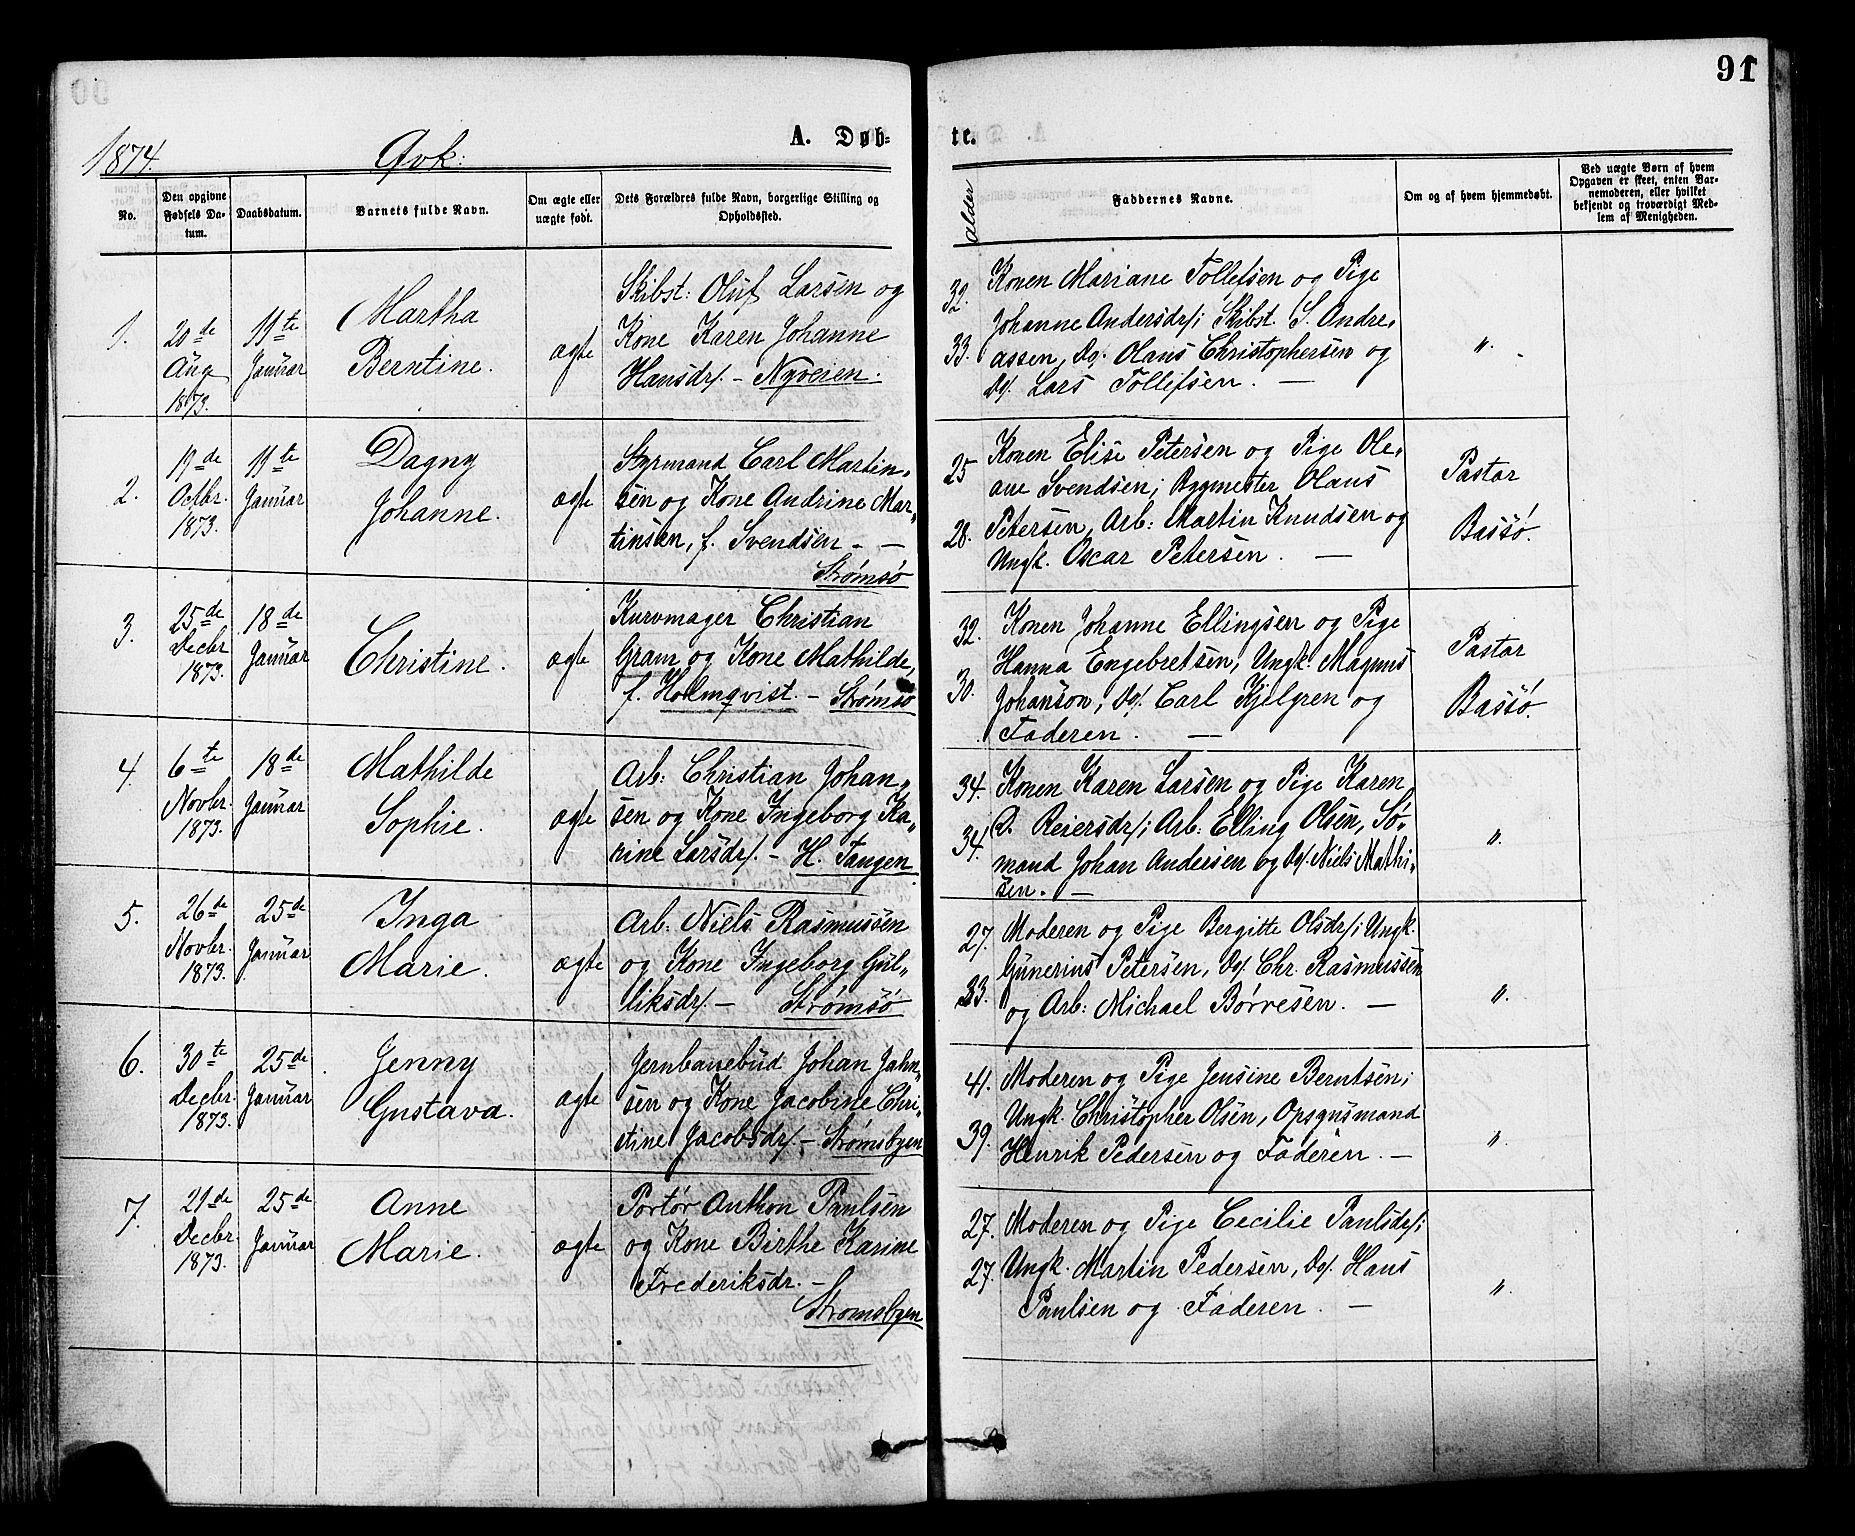 91
1874.
Qvk:
A. Døb-
te.
No.
Den opgivne Fødsels Datum.
Daabsdatum.
Barnets fulde Navn.
Om ægte eller uægte født.
Dets Forældres fulde Navn, borgerlige Stilling og Opholdssted.
Alder
Faddernes Navne.
Om og af hvem hjemmedøbt.
Ved uægte Børn af hvem Opgaven er skeet, enten Barnemoderen, eller hvilket bekjendt og troværdigt Medlem af Menigheden.
1.
20de Aug 1873.
11te Januar
Martha
Berntine.
ægte
Skibst: Oluf Larsen og
Kone Karen Johanne
Hansdr/. - Nyveien.
32.
33.
Konen Mariane Tollefsen og Pige
Johanne Andersdr/; Skibst. S. Andre,
assen, Do/. Olaus Christophersen og
Do/. Lars Tollefsen. —
"
2.
19de Octbr. 1873.
11te Januar
Dagny
Johanne.
ægte
Styrmand Carl Martin,
sen og Kone Andrine Mar,
tinsen, f. Svendsen - —
Strømsø
25
28.
Konen Elise Petersen og Pige Ole,
ane Svendsen; Bygmester Olaus
Petersen, Arb: Martin Knudsen og
Ungk. Oscar Petersen. —
Pastor
Bassø.
3.
25de Decbr 1873.
18de Januar
Christine.
ægte
Kurvmager Christian
Gram og Kone Mathilde,
f. Holmqvist. - Strømsø
32.
30.
Konen Johanne Ellingsen og Pige
Hanna Engebretsen, Ungk. Magnus
Johanson, Do/. Carl Kjelgren og
Faderen. —
Pastor
Bassø.
4.
6te Novbr. 1873.
18de Januar
Mathilde
Sophie.
ægte
Arb: Christian Johan,
sen og Kone Ingeborg Ka,
rine Larsdr/. - H. Tangen
34.
34.
Konen Karen Larsen og Pige Karen
D. Reiersdr/; Arb: Elling Olsen, Sø,
mand Johan Andersen og Do/. Niels Mathi,
sen. —
"
5.
26de Novbr. 1873.
25de Januar
Inga
Marie.
ægte
Arb: Niels Rasmussen
og Kone Ingeborg Gul,
liksdr/. - Strømsø
27.
33.
Moderen og Pige Bergitte Olsdr/; Ungk.
Gunerius Petersen, Do/. Chr. Rasmussen
og Arb: Michael Børresen. —
"
6.
30te Decbr 1873.
25de Januar
Jenny
Gustava.
ægte
Jernbanebud Johan Jahn,
sen og Kone Jacobine Chri,
stine Jacobsdr/. - Strømsbyen
41.
39.
Moderen og Pige Jensine Berntsen;
Ungk. Christopher Olsen, Opsynsmand
Henrik Pedersen og Faderen. —
"
7.
21de Decbr. 1873.
25de Januar
Anne
Marie.
ægte
Portør Anthon Paulsen
og Kone Birthe Karine
Frederiksdr. -
Strømsbyen
27.
27.
Moderen og Pige Cecilie Paulsdr/;
Ungk. Martin Pedersen, Do/. Hans
Paulsen og Faderen. —
"